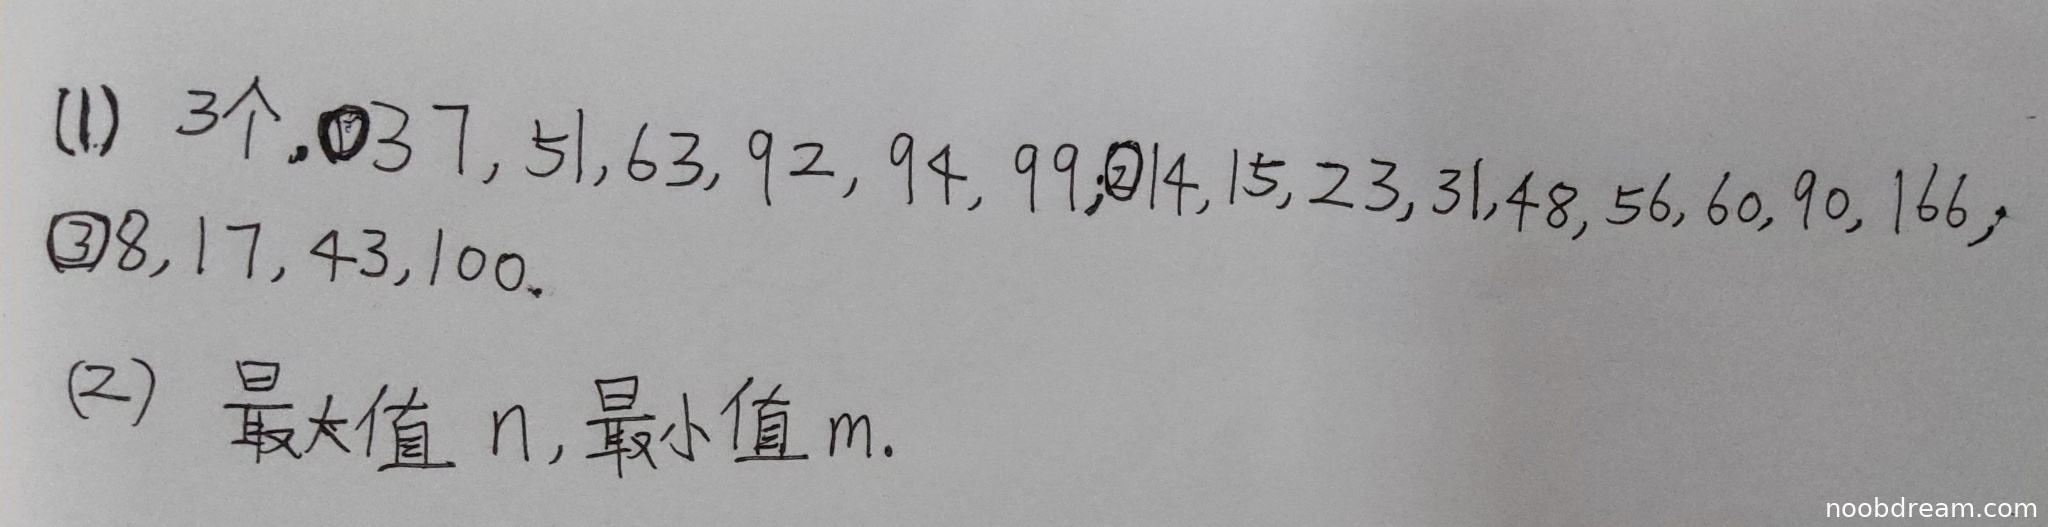 (1) 3个.①37,51,63,92,94,99;②14,15,23,31,48,56,60,90,166;
③8,17,43,100.
(2) 最大值 n,最小值 m.
noobdream.com